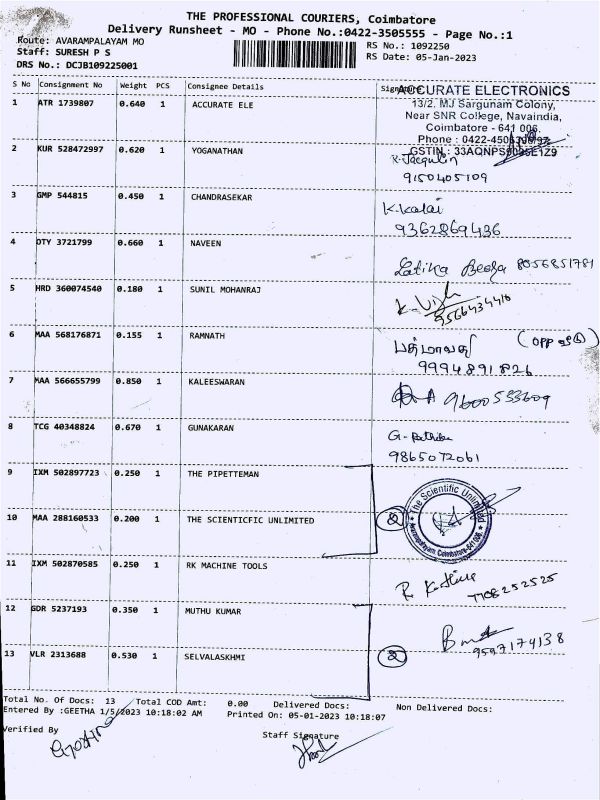 THE PROFESSIONAL COURIERS, Coimbatore
Delivery Runsheet - MO - Phone No.:0422-3505555 - Page No.:1
Route: AVARAMPALAYAM MO
RS No.: 1092250
Staff: SURESH P S
RS Date: 05-Jan-2023
DRS No.: DCJB109225001
S No Consignment No Weight PCS Consignee Details Signature
ACCURATE ELECTRONICS
1 ATR 1739807 0.640 1 ACCURATE ELE
13/2, MJ Sargunam Colony,
Near SNR College, Navaindia,
Coimbatore - 641 006.
Phone : 0422-4506
GSTIN : 33AQNPS9095E1Z9
2 KUR 528472997 0.620 1 YOGANATHAN
R. Jacqulin
9150405109
3 GMP 544815 0.450 1 CHANDRASEKAR
K. Kalai
9362869436
4 OTY 3721799 0.660 1 NAVEEN
Latika 8056851781
5 HRD 360074540 0.180 1 SUNIL MOHANRAJ
9566434410
6 MAA 568176871 0.155 1 RAMNATH
பத்மாவதி (OPP வீடு)
9994891826
7 MAA 566655799 0.850 1 KALEESWARAN
9600533609
8 TCG 40348824 0.670 1 GUNAKARAN
G.
9865072061
9 IXM 502897723 0.250 1 THE PIPETTEMAN
10 MAA 288160533 0.200 1 THE SCIENTICFIC UNLIMITED
2
The Scientific Unlimited
Avarampalayam, Coimbatore-641 006
11 IXM 502870585 0.250 1 RK MACHINE TOOLS
R
7708252525
12 GDR 5237193 0.350 1 MUTHU KUMAR
9597174138
13 VLR 2313688 0.530 1 SELVALASKHMI
2
Total No. Of Docs: 13 Total COD Amt: 0.00 Delivered Docs: Non Delivered Docs:
Entered By :GEETHA 1/5/2023 10:18:02 AM Printed On: 05-01-2023 10:18:07
Verified By
Staff Signature